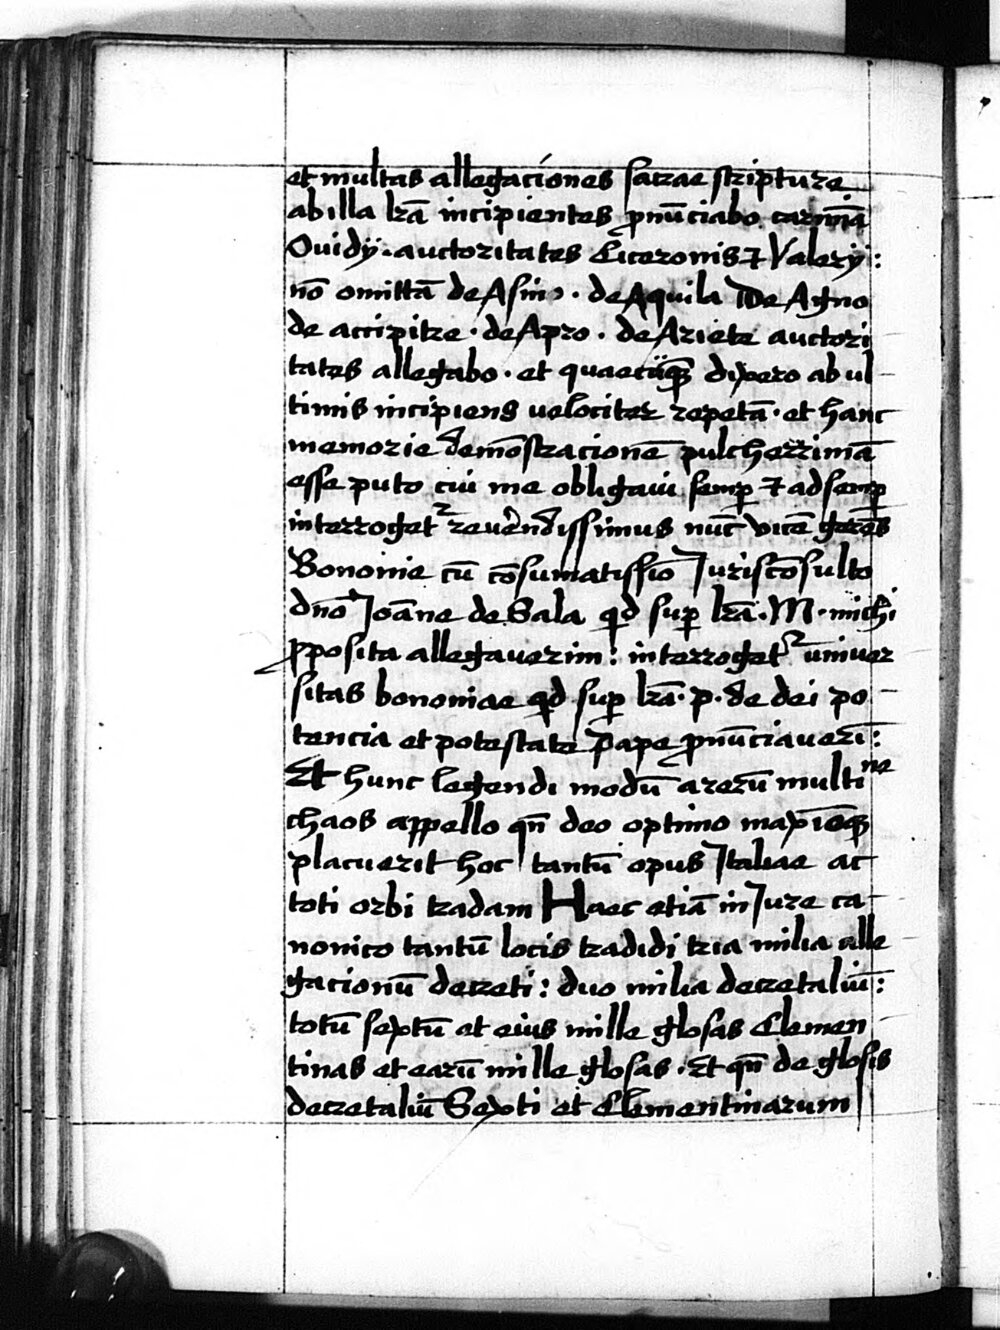 et multas allegaciones sacrae scripture
ab illa lrā incipientes ꝓnūciabo carmīa
Ouidij. auctoritates Ciceronis ⁊ Valerij:
nō omittā de Asino. de Aquila De Agno
de accipitre. de Apro. de Ariete auctori
tates allegabo. et quaecūqꝫ dixero ab ul
timis incipiens uelociter repetā. et hanc
memorie demōstracionē pulcherrimā
esse puto cui me obligaui semꝑ ⁊ ad semꝑ
interroget᷑ reuerendissimus nūc vicē gerēs
Bononie cū cōsumatissīo Juriscōsulto
dn̄o Joāne de Sala qd suꝑ lrā. M. michi
ꝓposita allegauerim: interroget᷑ uniuer
sitas bononiae qd suꝑ lrā. p. de dei po
tencia et potestate Pape ꝓnūciauerī:
Et hunc legendi modū a rerū multi ne
chaos appello qn̄ deo optimo maxīoqꝫ
placuerit hoc tantū opus Italiae ac
toti orbi tradam Haec etiā in Jure ca
nonico tantū locis tradidi tria milia alle
gacionū decreti: duo milia decretaliū:
totū sextū et eius mille glosas Clemen
tinas et earū mille glosas. Et qn̄ de glosis
decretaliū Sexti et Clementinarum